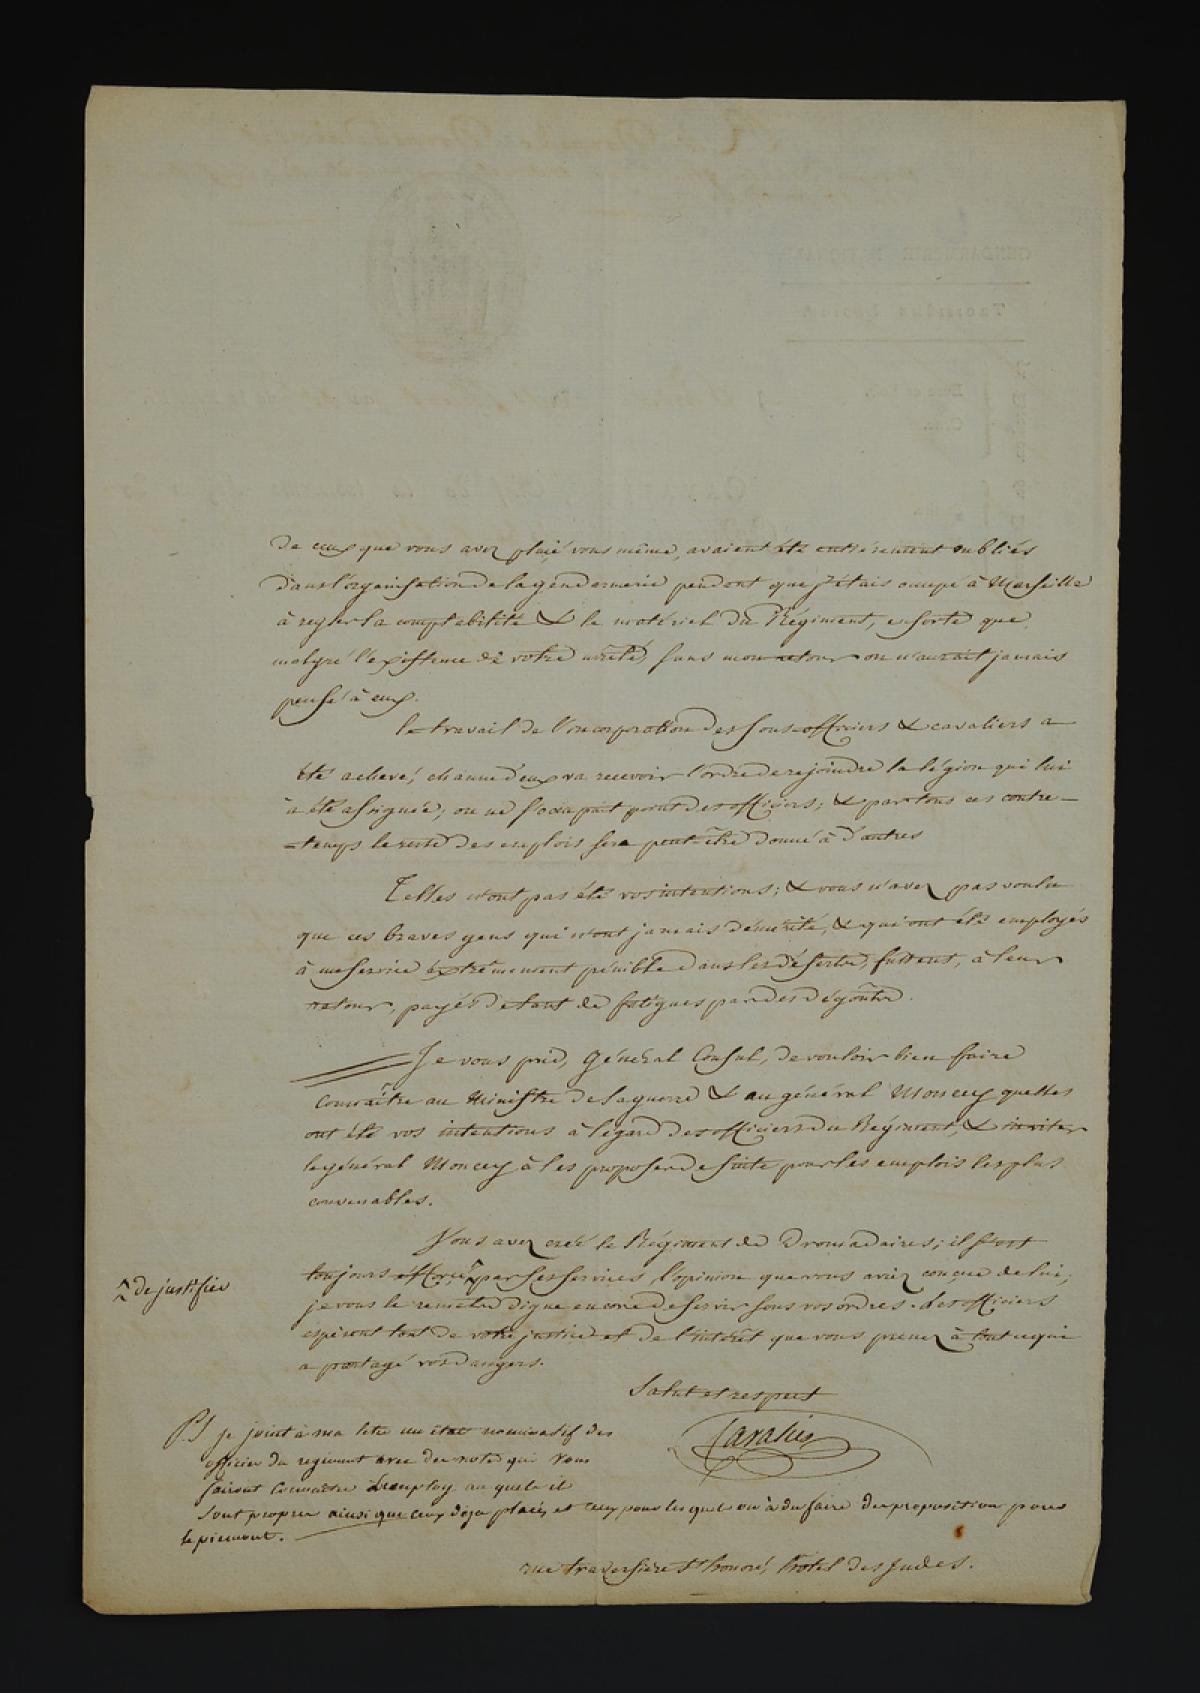 de ceux que vous avez placé vous même, avaient été entièrement oubliés
dans l'organisation de la gendarmerie pendent que j'étais occupé à Marseille
à regler la comptabilité & le matériel du Régiment, ensorte que
malgré l'existence de votre arrêté, sans mon retour on n'aurait jamais
pensé à eux.
le travail de l'incorporation des sous-officiers & cavaliers a
été achevé, chacun d'eux va recevoir l'ordre de rejoindre la légion qui lui
à été assignée; on ne s'occupait point des officiers; & par tous ces contre-
-temps le reste des emplois sera peut-être donné à d'autres
Telles n'ont pas été vos intentions; & vous n'avez pas voulu
que ces braves gens qui n'ont jamais démérité, & qui ont été employés
à un service extrêmement pénible dans les déserts, fussent, à leur
retour, payés de tant de fatigues par des dégoûts.
Je vous prie, Général Consul, de vouloir bien faire
connaître au Ministre de la guerre & au général Moncey quelles
ont été vos intentions à l'égard des officiers du Régiment, & inviter
le général Moncey à les proposer de suite pour les emplois les plus
convenables.
Vous avez créé le Régiment de Dromadaires; il s'est
toujours efforcé ^ par ses services, l'opinion que vous aviez conçue de lui,
^ de justifier
je vous le remets digne encore de servir sous vos ordres. Les officiers
espèrent tout de votre justice et de l'intérêt que vous prenez à tout ce qui
a partagé vos dangers.
Salut et respect
Cavalier
P.S je joint à ma letre un état nominatif des
officier du regiment avec des notes qui vous
fairont connaître l'employ auquels il
sont propres ainsi que ceux deja placés, et ceux pour les quels on à du faire des propositions pour
le piemont.
rue traversière St honoré, hotel des Indes.